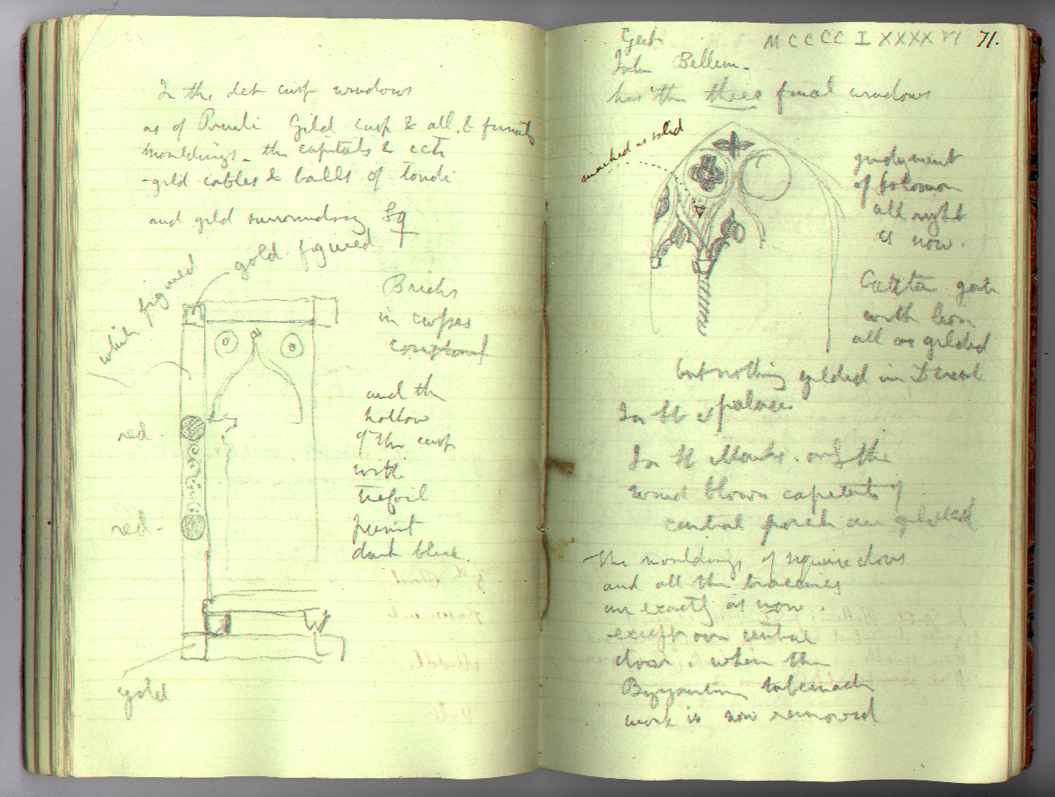 In the det cusp windows
as of Gild cusp & all & finials
mouldings - the capitals &
- gild cables & balls of tondi
and gild surrounding Sq
gold figured
white figured
Bricks
in
red.
red -
and the
hollow
of the cusp
with
trefoil
dark blue.
gold
Gent MCCCCIXXXXVI 71.
John Bellini -
has the three final windows
marked as solid
judgement
of Solomon
all right
as now.
gate
with lion
all as gilded
but nothing gilded in
In palaces
In St Marks. only the
wind blown capitals of
central porch are gilded
The mouldings of square doors
and all the traceries
are exactly as now.
except over central
door, where the
Byzantine tabernacle
work is now removed